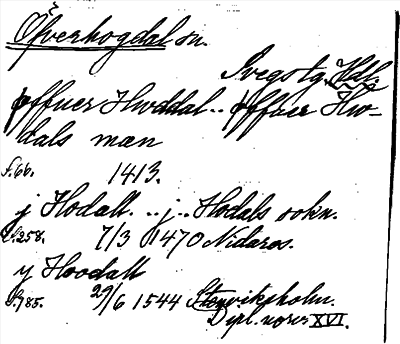 Öfverhogdal sn.
Svegs tg. Hdl.
øffuer Hwddal .. øffuer Hw-
dals mæn
S. 66. 1413.
j Hodall. .. j .. Hodals sokn.
S. 258. 7/3 1470 Nidaros.
y Hoodall
S. 785. 29/6 1544 Stenviksholm.
Dipl. norv. XVI.